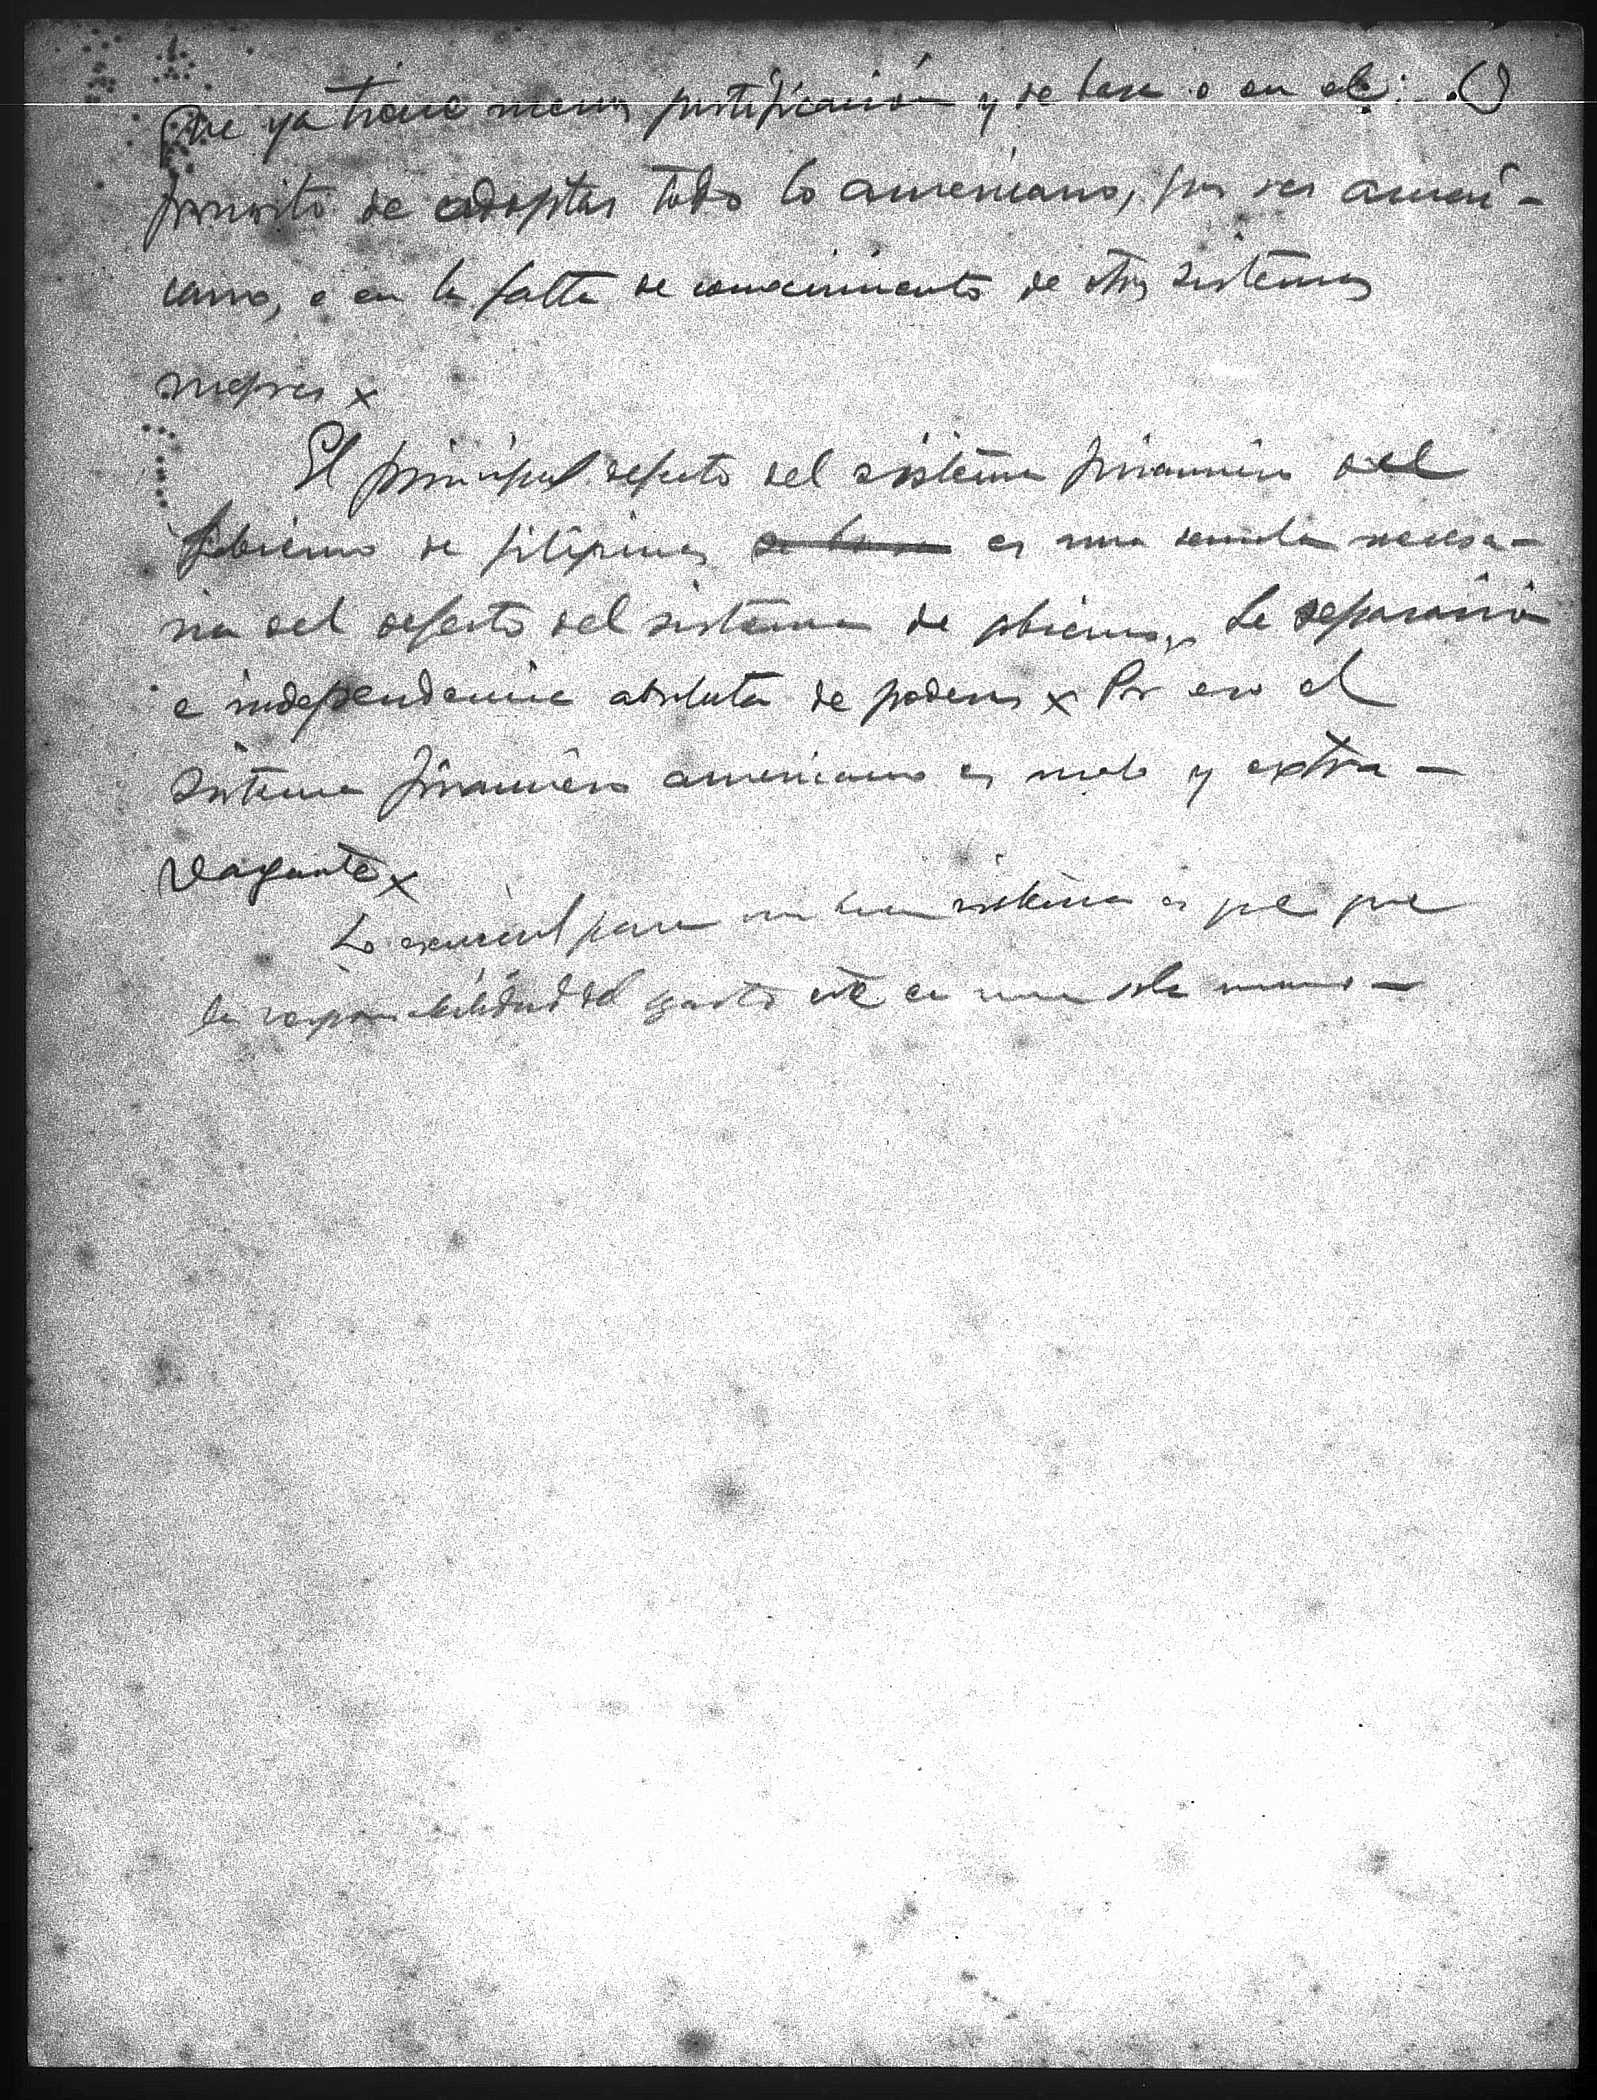 que ya tiene menos justificación y se basa o en el
prurito de adoptar todo lo americano, por ser ameri-
cano, o en la falta de conocimiento de otros sistemas
mejores x
El principal defecto del sistema financiero del
gobierno de filipinas es una secuela necesa-
ria del defecto del sistema de gobierno, la separación
e independencia absoluta de poderes x Por eso el
sistema financiero americano es malo y extra-
vagante x
Lo esencial para un buen sistema es que que
la responsabilidad del gasto esté en una sola mano -